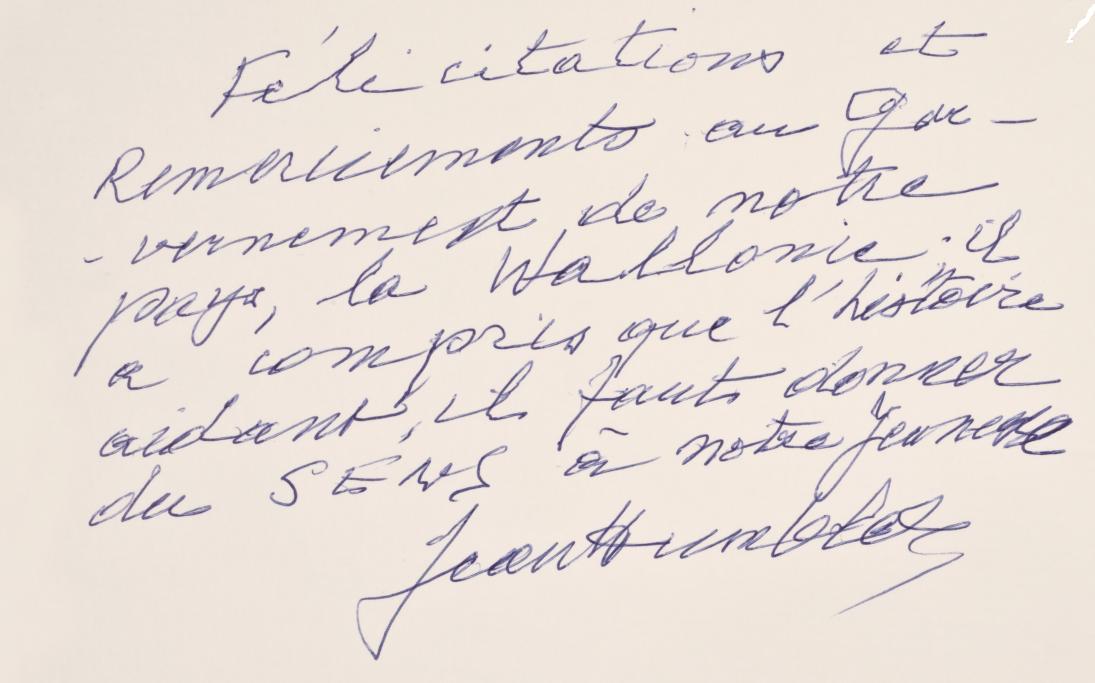 Félicitations et
Remerciements au Gou-
-vernement de notre
pays, la Wallonie ; il
a compris que l'histoire
aidant, il faut donner
du SENS à notre jeunesse
Jean Humblet